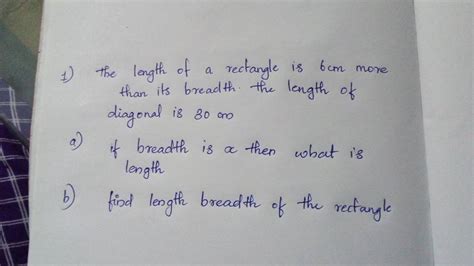 1) the length of a rectangle is 6cm more
than its breadth. the length of
diagonal is 30 cm
a) if breadth is x then what is
length
b) find length breadth of the rectangle